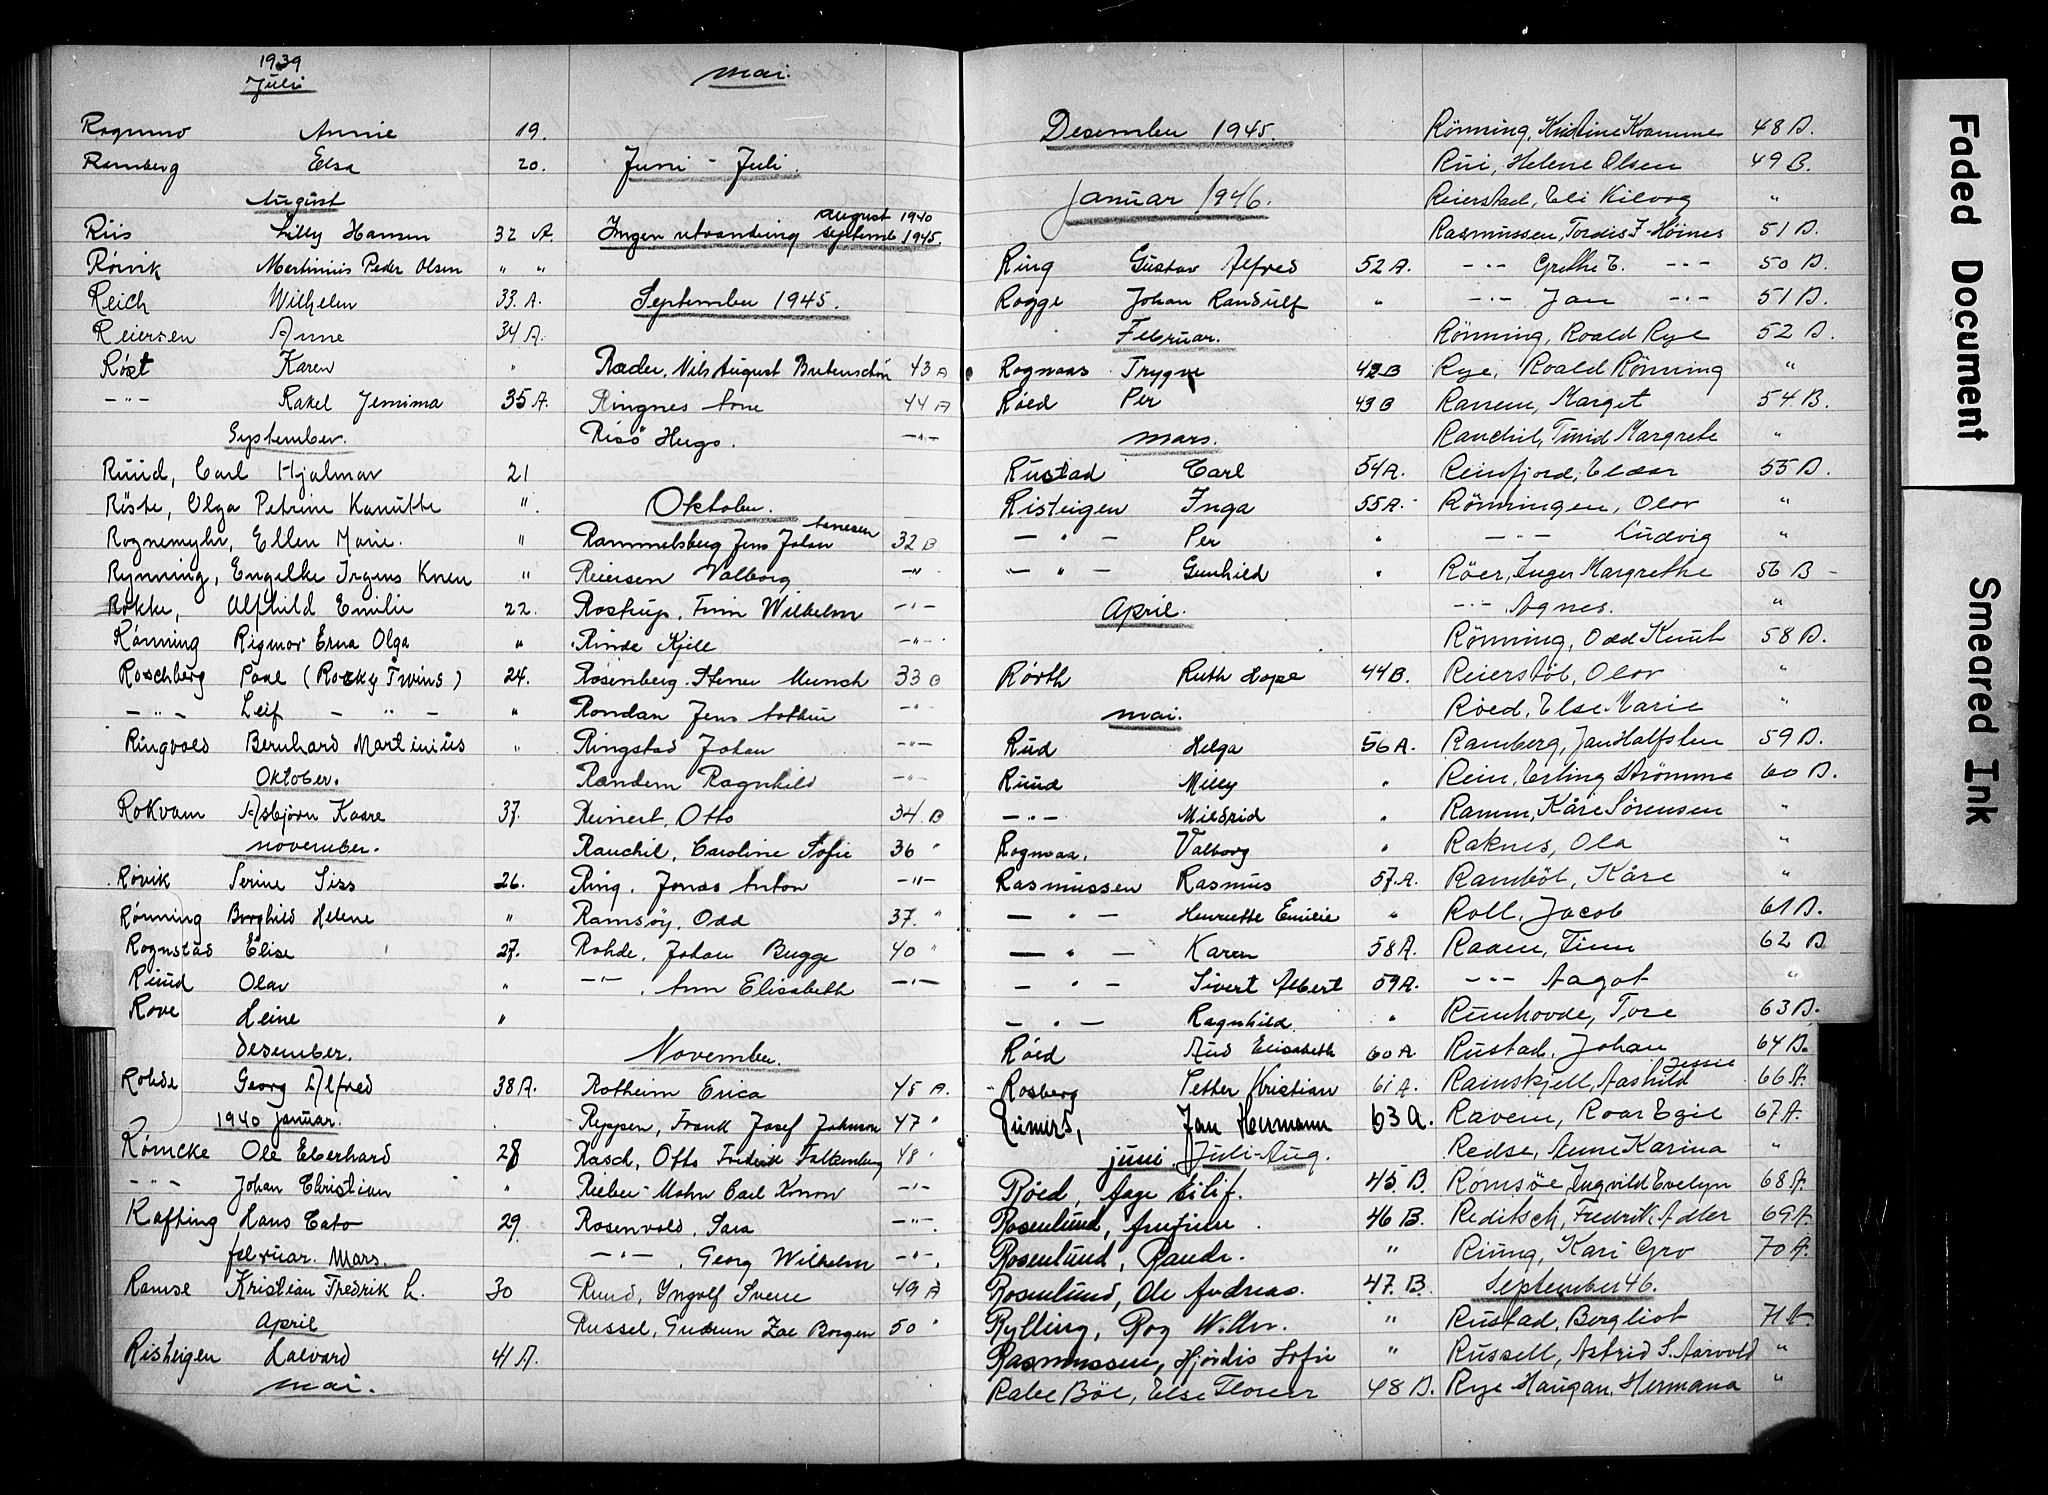 1939
Juli
Rognmo Annie 19.
Ramberg Elsa 20.
August
Riis Lilly Hansen 32 A.
Røivik Martinius Peder Olsen " "
Reich Wilhelm 33. A.
Reiersen Anne 34 A.
Røst Karen "
-"- Rakel Jemima 35 A.
September.
Ruud, Carl Hjalmar 21
Röste, Olga Petrine Kanutte "
Rognemyhr, Ellen Marie. "
Rynning, Engelke Irgens Knen "
Rokke, Alfhild Emilie 22.
Rønning Rigmor Erna Olga "
Roschberg Paal (Rocky Twins) 24.
- " - Leif - " - "
Ringvold Bernhard Martinius "
Oktober.
Rokvam Asbjørn Kaare 37.
November.
Røvik Serine Siss 26.
Rønning Borghild Helene "
Rognstad Elise 27.
Ruud Olav "
Rove Heine "
Desember.
Rohde Georg Alfred 38 A.
1940 Januar.
Rømcke Ole Eberhard 28
-"- Johan Christian "
Rafting Hans Cato 29
februar. Mars.
Ramse Kristian Fredrik L. 30
April
Risteigen Halvard 41 A.
mai.
mai.
Juni - Juli.
Ingen utvandring august 1940
septemb 1945.
September 1945.
Rader, Nils August Butenschön 43 A
Ringnes Arne 44 A
Risö Hugo. -"-
Oktober.
Rammelsberg Jens Johan Arnesen 32 B
Reiersen Valborg -"-
Rostrup, Finn Wilhelm -"-
Rinde Kjell -"-
Rosenberg. Stener Munch 33 B
Rondan Jens Arthur -"-
Ringstad Johan -"-
Randem Ragnhild -"-
Reinert, Otto 34 B
Rauchil, Caroline Sofie 36 "
Ring. Jonas Anton -"-
Ramsöy, Odd 37. "
Rohde, Johan Bugge 40 "
-"- , Ann Elisabeth -"-
November.
Rotheim Erica 45 A.
Reppen, Frank Josef Johnson 47 "
Rasch, Otto Fredrik Falkenberg 48 "
Rieber-Mohn Carl Konow -"-
Rosenvold, Sara -"-
-"- , Georg Wilhelm -"-
Ruud, Yngolf Svene 49 A
Russel, Gudrun Zae Borgen 50 "
Desember 1945.
Januar 1946.
Ring Gustav Alfred 52 A.
Rogge Johan Randulf "
Februar.
Rognaas Trygve 42 B
Røed Per 43 B
mars.
Rustad Carl 54 A.
Risteigen Inga 55 A.
- " - Per "
- " - Gunhild "
April.
Rørth Ruth Hope 44 B.
mai.
Rud Helga 56 A.
Ruud Milly "
- " - Mildrid "
Rognaa. Valborg "
Rasmussen Rasmus 57. A.
- " - Henriette Emilie "
- " - Karen 58 A.
- " - Sivert Albert 59 A.
- " - Ragnhild. "
Røed Aud Elisabeth 60 A
Rosberg Petter Kristian 61 A.
Rumerd, Jan Hermann 63 A.
juni. Juli-Aug.
Røed, Aage Eilif. 45. B.
Rosenlund, Arnfinn. 46 B.
Rosenlund, Randi. "
Rosenlund, Ole Andreas. 47. B.
Rylling, Roy Willm. "
Rasmussen, Hjördis Sofie "
Rabe Böe, Else Florence 48 B.
Rönning, Kristine Kvamme 48 B.
Rui, Helene Olsen 49 B.
Reierstad, Eli Kilvog "
Rasmussen, Tordis F. Höines 51 B.
-"- Grethe E. -"- 50 B.
-"- Jan -"- 51 B.
Rönning, Roald Rye 52 B.
Rye, Roald Rönning "
Ranem, Marget 54 B.
Rauchil, Turid Margrete "
Reinfjord, Eldar 55 B.
Rönningen, Olov "
-"- Ludvig "
Röer, Inger Margrethe 56 B -
-"- Agnes. "
Rönning, Odd Knut 58 B.
Reierstöl, Olov "
Röed, Else Marie "
Ramberg, Jan Halfsten 59 B.
Rein, Erling Strömme 60 B.
Ramm, Kåre Sørensen "
Raknes, Ola "
Ramböl, Kåre "
Roll, Jacob 61 B.
Raaen, Finn 62 B
-"- Aagot "
Runhovde, Tore 63 B.
Rustad, Johan 64 B.
Rainskjell, Aashild Jessie 66 A.
Ravem, Roar Egil 67 A.
Redse, Anne Karina "
Römsöe, Ingvild Evelyn 68 A.
Reditsch, Fredrik Adler 69 A.
Riung, Kari Gro 70 A.
September 46.
Rustad, Bergliot 71 A.
Russell, Astrid S. Aarvold "
Rye Haugan, Hermana "
Faded Document
Smeared Ink